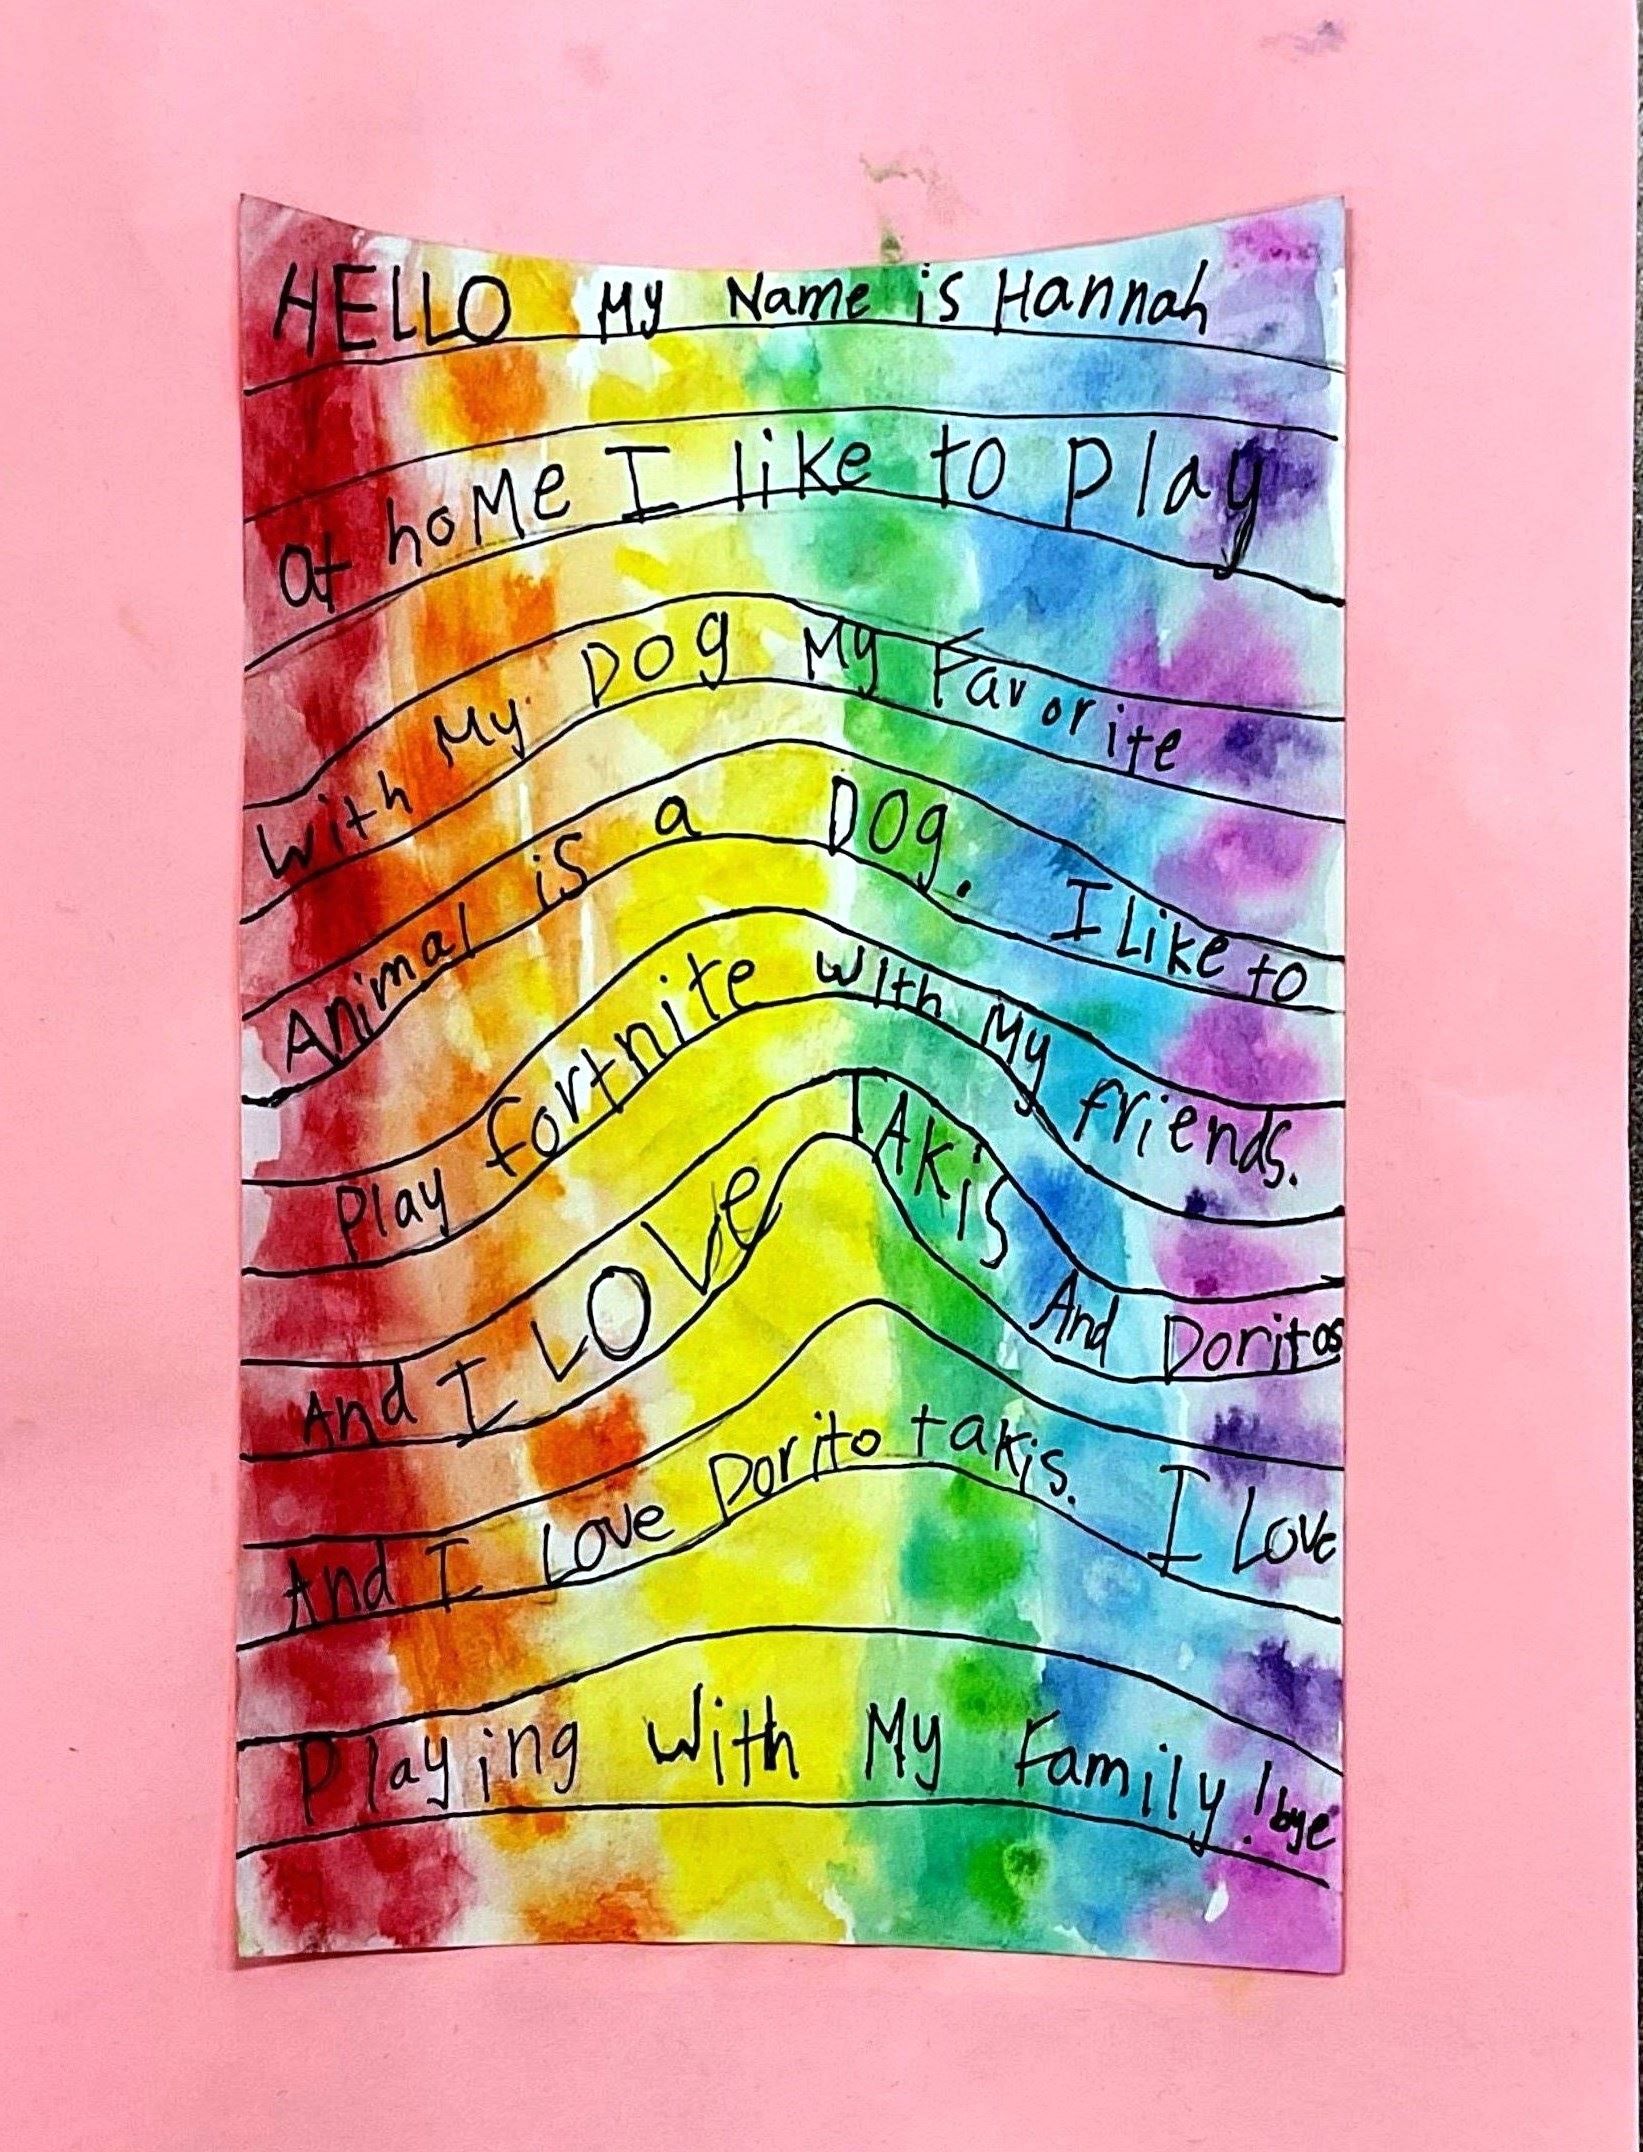 HELLO My Name is Hannah
at hoMe I like to play
with My DOg My Favorite
Animal is a DOg. I Like to
play fortnite with My friends.
And I LOVe TAkis And Doritos
And I Love Dorito takis. I Love
Playing With My Family! bye